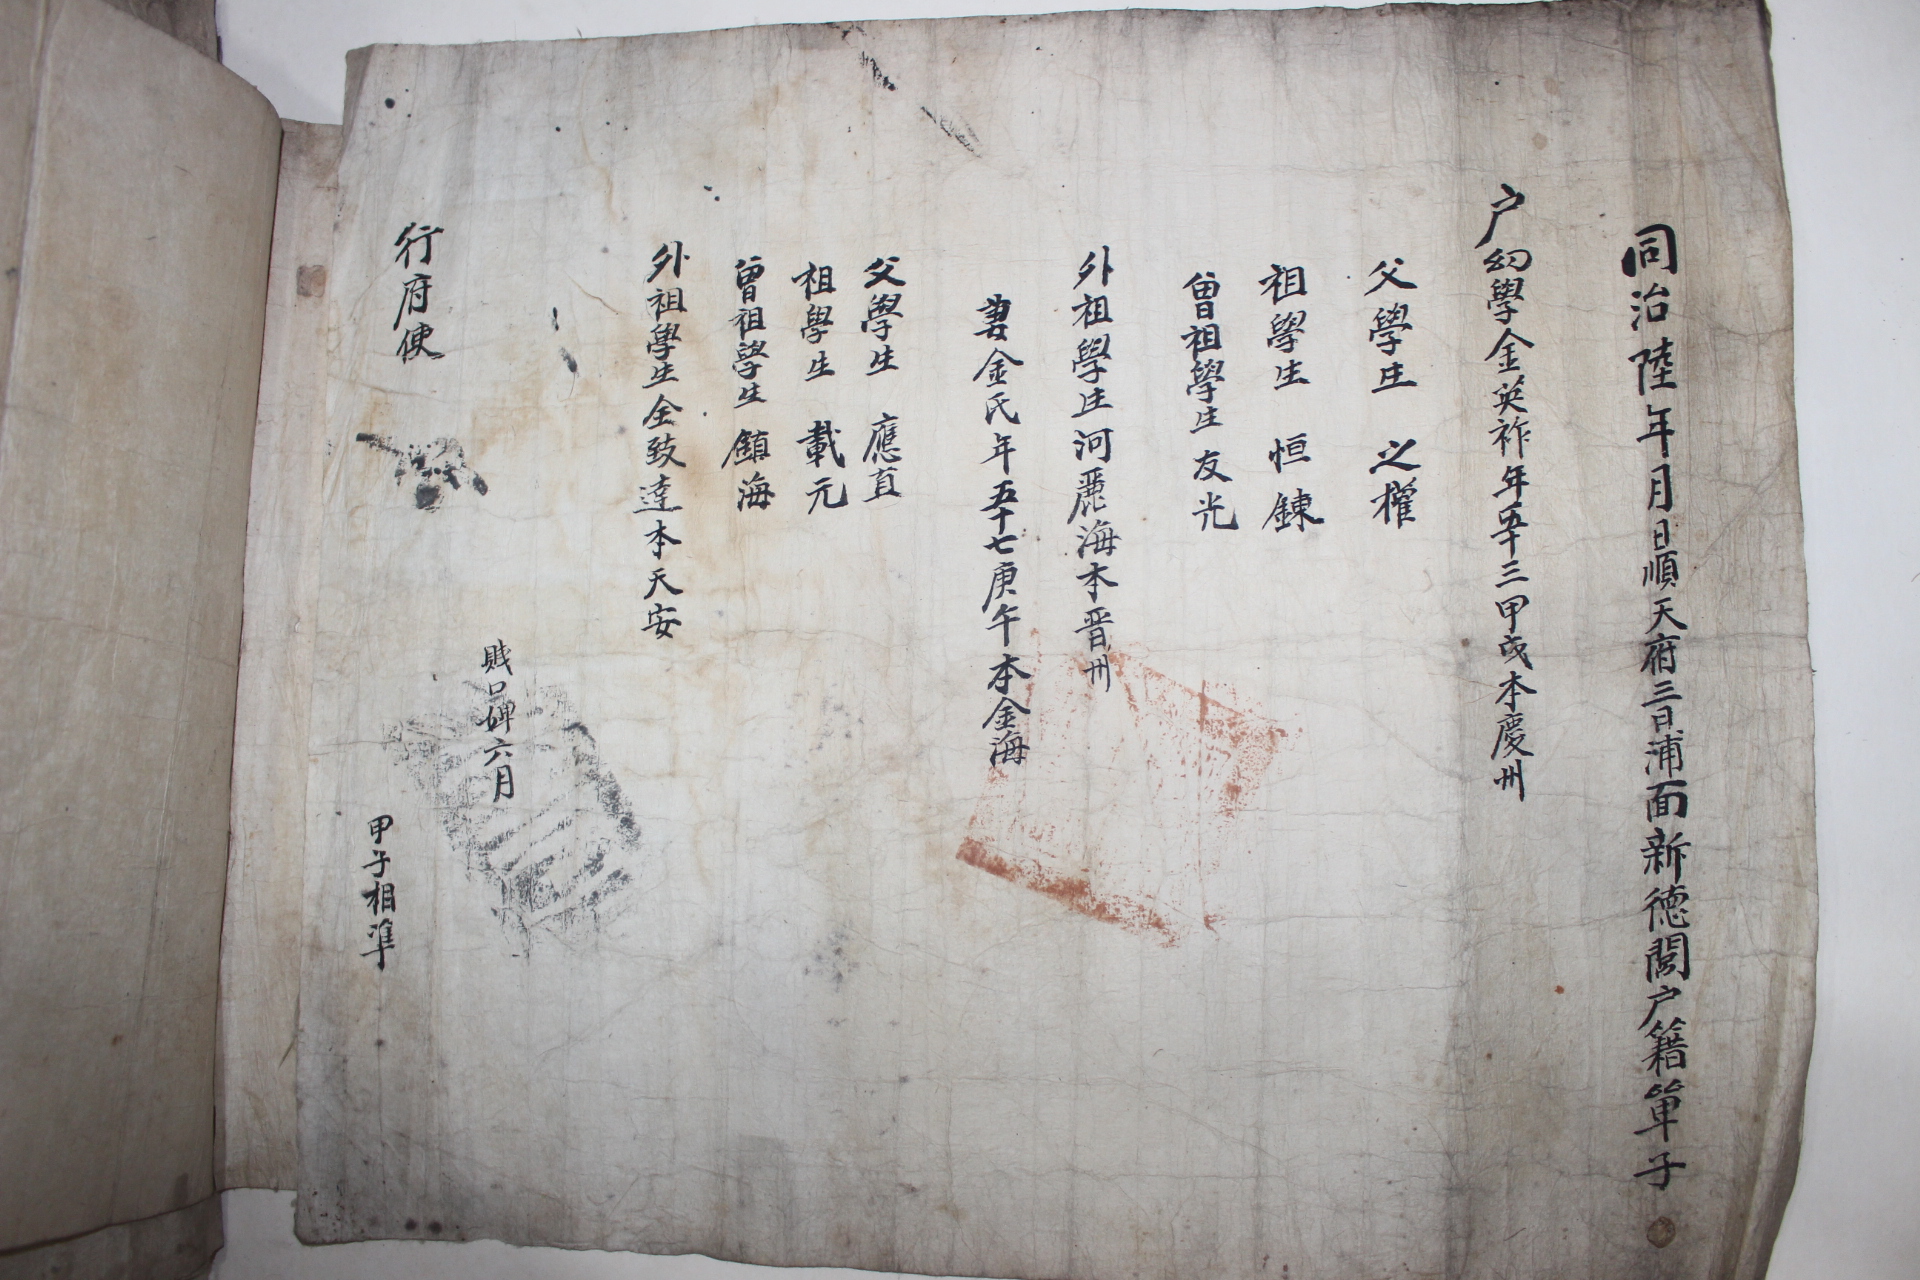 同治陸年月日順天府三日浦面新德閭户籍單子
户幼學金英祚年五十三甲戌本慶州
父學生 之櫂
祖學生 恒鍊
曾祖學生 友光
外祖學生河麗海本晋州
妻金氏年五十七庚午本金海
父學生 應直
祖學生 載元
曾祖學生 鎮海
外祖學生全致達本天安
賎口婢六月
行府使
甲子相準